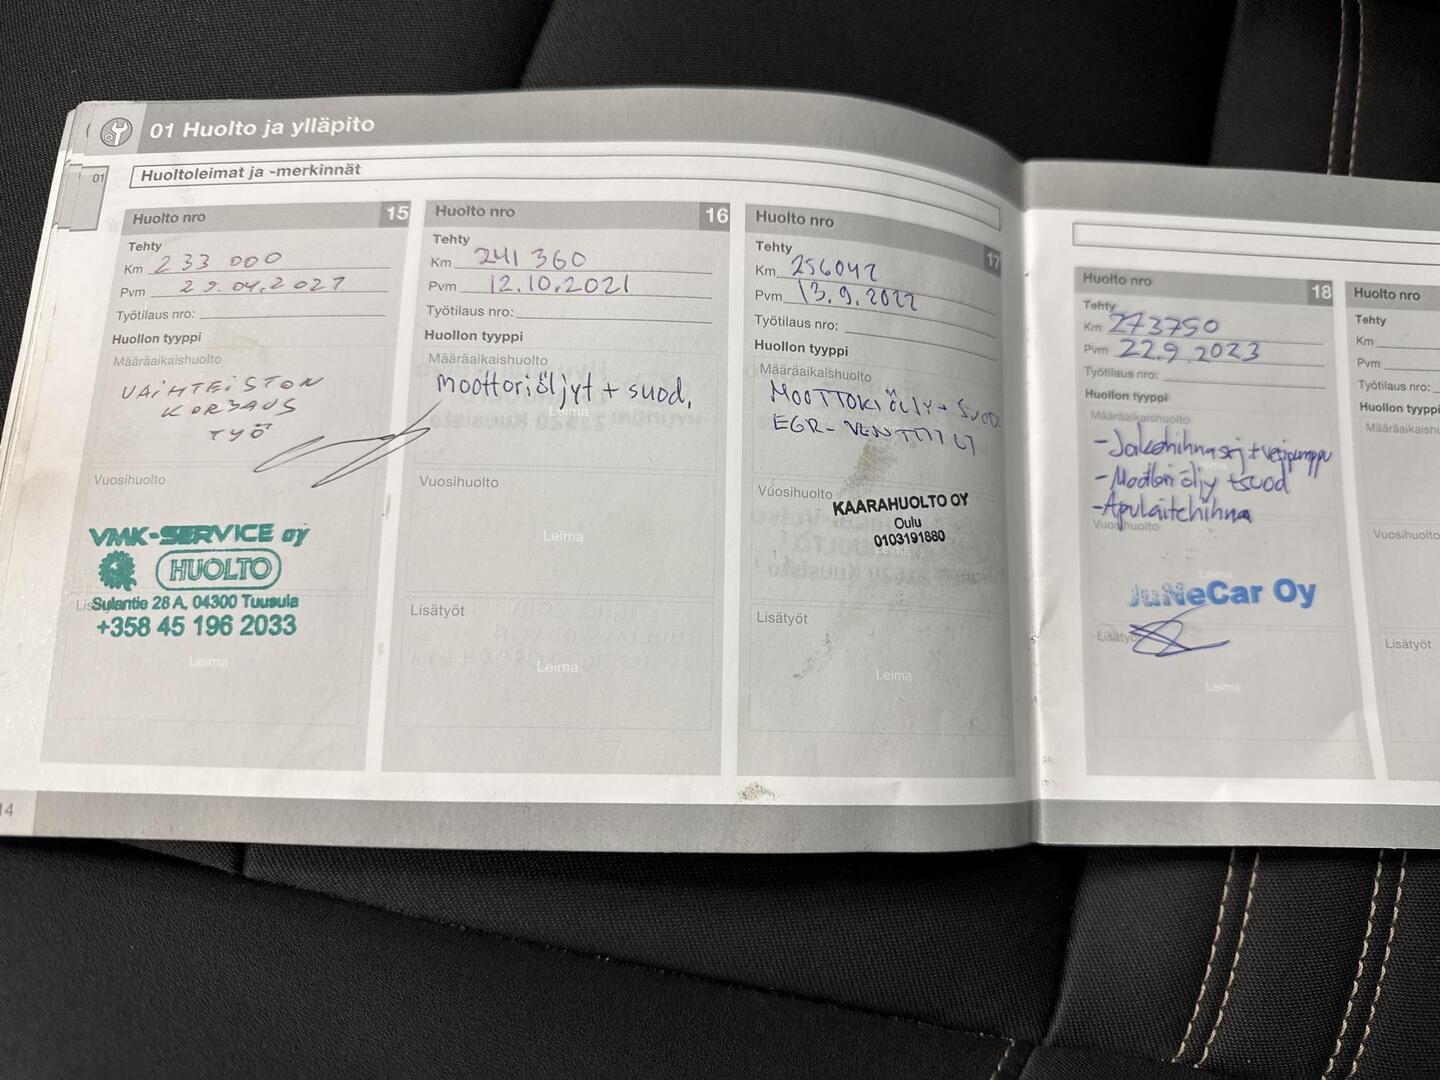 01 Huolto ja ylläpito
01
Huoltoleimat ja -merkinnät
Huolto nro 15
Tehty
Km 233 000
Pvm 29.04.2021
Työtilaus nro:
Huollon tyyppi
Määräaikaishuolto
VAIHTEISTON
KORJAUS
TYÖ
Vuosihuolto
VMK-SERVICE oy
HUOLTO
Sulantie 28 A, 04300 Tuusula
+358 45 196 2033
Leima
14
Huolto nro 16
Tehty
Km 241 360
Pvm 12.10.2021
Työtilaus nro:
Huollon tyyppi
Määräaikaishuolto
moottoriöljyt + suod.
Leima
Vuosihuolto
Leima
Lisätyöt
Leima
Huolto nro 17
Tehty
Km 256042
Pvm 13.9.2022
Työtilaus nro:
Huollon tyyppi
Määräaikaishuolto
MOOTTORIÖLJY + SUOD.
EGR-VENTTIILI
Vuosihuolto
KAARAHUOLTO OY
Oulu
0103191880
Leima
Lisätyöt
Leima
Huolto nro 18
Tehty
Km 273750
Pvm 22.9.2023
Työtilaus nro:
Huollon tyyppi
Määräaikaishuolto
-Jakohihnasrj+vesipumppu
-Moottoriöljy +suod
-Apulaitehihna
Vuosihuolto
Leima
JuNeCar Oy
Lisätyöt
Leima
Huolto nro
Tehty
Km
Pvm
Työtilaus nro:
Huollon tyyppi
Määräaikaishu
Vuosihuolto
Lisätyöt